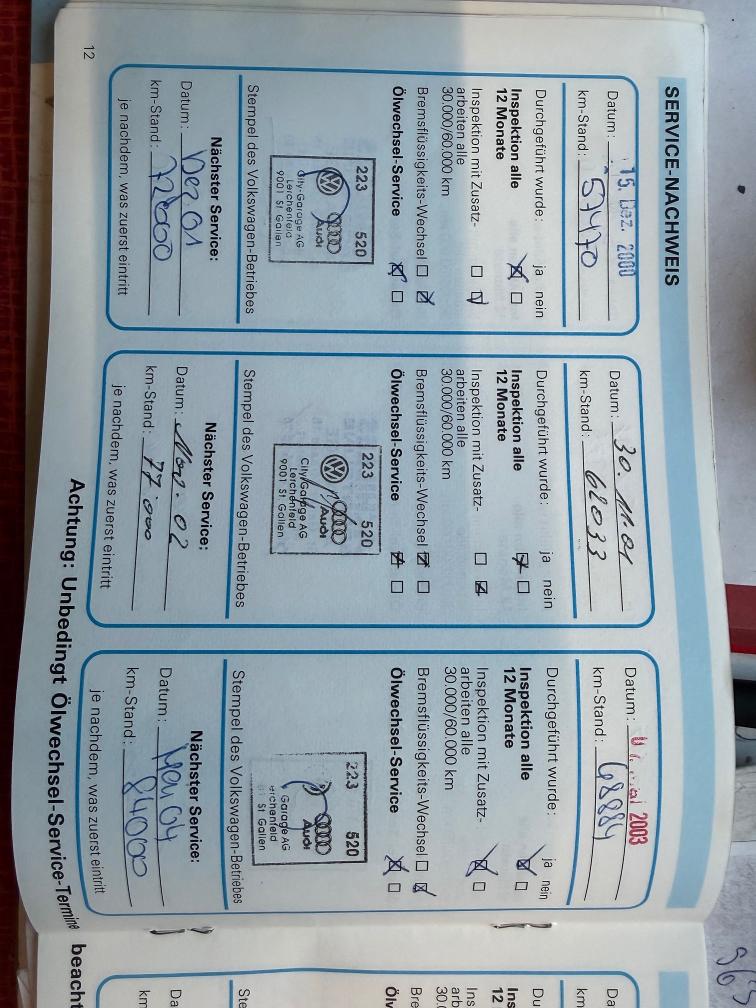 SERVICE-NACHWEIS
Datum: 15. Dez. 2000
km-Stand: 57470
Durchgeführt wurde: ja nein
Inspektion alle
12 Monate
Inspektion mit Zusatz-
arbeiten alle
30.000/60.000 km
Bremsflüssigkeits-Wechsel
Ölwechsel-Service
223 520
Audi
City-Garage AG
Lerchenfeld
9001 St. Gallen
Stempel des Volkswagen-Betriebes
Nächster Service:
Datum: Dez 01
km-Stand: 72000
je nachdem, was zuerst eintritt
Datum: 30. 11. 01
km-Stand: 62033
Durchgeführt wurde: ja nein
Inspektion alle
12 Monate
Inspektion mit Zusatz-
arbeiten alle
30.000/60.000 km
Bremsflüssigkeits-Wechsel
Ölwechsel-Service
223 520
Audi
City-Garage AG
Lerchenfeld
9001 St. Gallen
Stempel des Volkswagen-Betriebes
Nächster Service:
Datum: Nov. 02
km-Stand: 77'000
je nachdem, was zuerst eintritt
Datum: 2003
km-Stand: 68884
Durchgeführt wurde: ja nein
Inspektion alle
12 Monate
Inspektion mit Zusatz-
arbeiten alle
30.000/60.000 km
Bremsflüssigkeits-Wechsel
Ölwechsel-Service
223 520
Audi
Garage AG
erchenfeld
St. Gallen
Stempel des Volkswagen-Betriebes
Nächster Service:
Datum: Mai 04
km-Stand: 84000
je nachdem, was zuerst eintritt
Achtung: Unbedingt Ölwechsel-Service-Termine beacht
12
Da
km
Du
Ins
12
Ins
arb
30.0
Bre
Ölv
Ste
Da
km